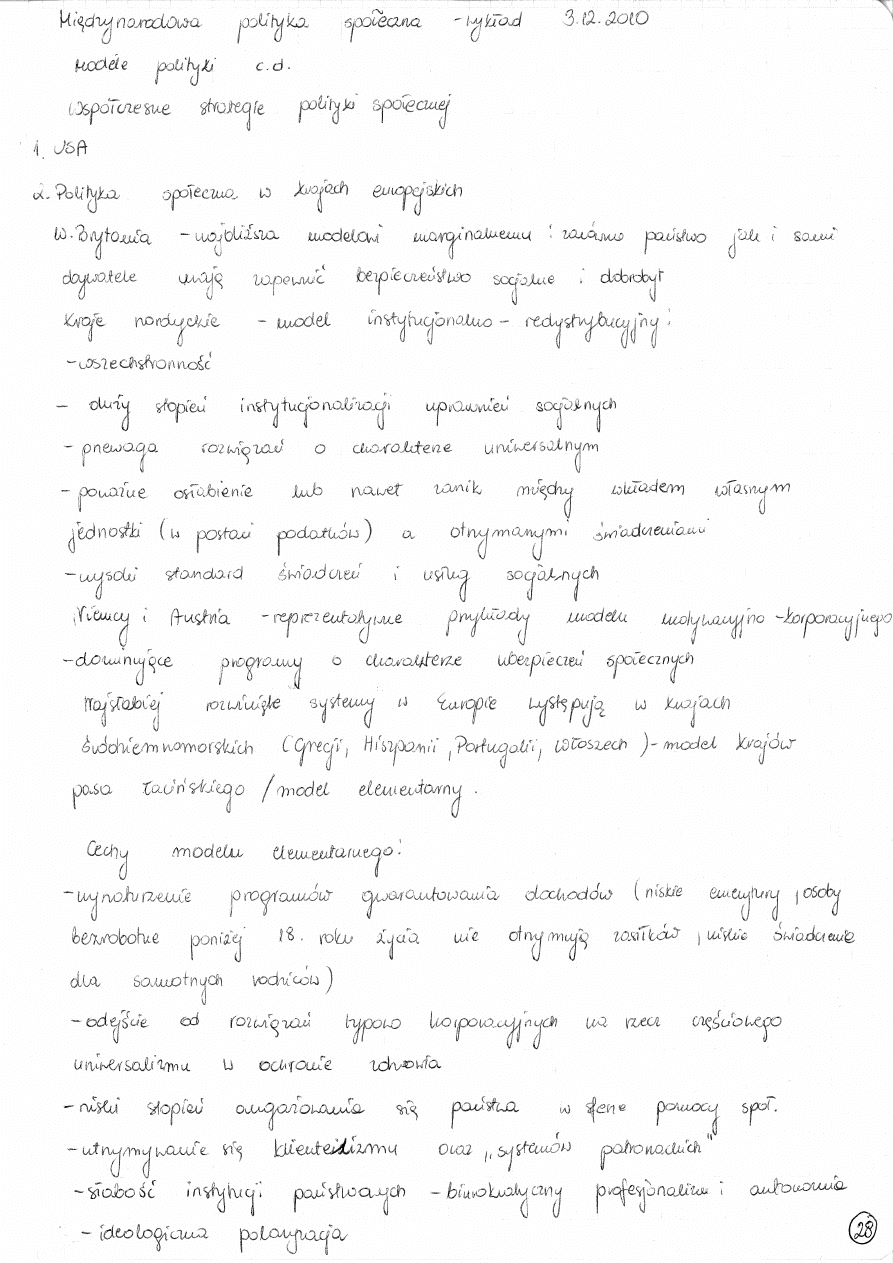 Międzynarodowa polityka społeczna - wykład 3.12.2010
Modele polityki c.d.
Współczesne strategie polityki społecznej
1. USA
2. Polityka społeczna w krajach europejskich
W. Brytania - najbliższa modelowi marginalnemu: zarówno państwo jak i sami
obywatele mają zapewnić bezpieczeństwo socjalne i dobrobyt
Kraje nordyckie - model instytucjonalno - redystrybucyjny:
- wszechstronność
- duży stopień instytucjonalizacji uprawnień socjalnych
- przewaga rozwiązań o charakterze uniwersalnym
- poważne osłabienie lub nawet zanik między wkładem własnym
jednostki (w postaci podatków) a otrzymanymi świadczeniami
- wysoki standard świadczeń i usług socjalnych
Niemcy i Austria - reprezentatywne przykłady modelu motywacyjno - korporacyjnego
- dominujące programy o charakterze ubezpieczeń społecznych
Najsłabiej rozwinięte systemy w Europie występują w krajach
śródziemnomorskich (Grecji, Hiszpanii, Portugalii, Włoszech) - model krajów
pasa łacińskiego / model elementarny.
Cechy modelu elementarnego:
- wynaturzenie programów gwarantowania dochodów (niskie emerytury, osoby
bezrobotne poniżej 18. roku życia nie otrzymują zasiłków, niskie świadczenia
dla samotnych rodziców)
- odejście od rozwiązań typowo korporacyjnych na rzecz częściowego
uniwersalizmu w ochronie zdrowia
- niski stopień angażowania się państwa w sferę pomocy społ.
- utrzymywanie się klientelizmu oraz „systemów patronackich"
- słabość instytucji państwowych - biurokratyczny profesjonalizm i autonomia
- ideologiczna polaryzacja
28